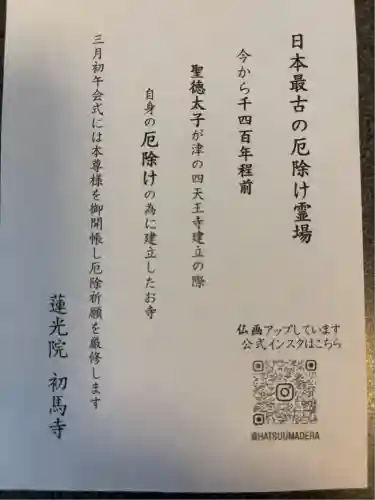 日本最古の厄除け霊場
今から千四百年程前
聖徳太子が津の四天王寺建立の際
自身の厄除けの為に建立したお寺
三月初午会式には本尊様を御開帳し厄除祈願を厳修します
蓮光院 初馬寺
仏画アップしています
公式インスタはこちら
@HATSUUMADERA